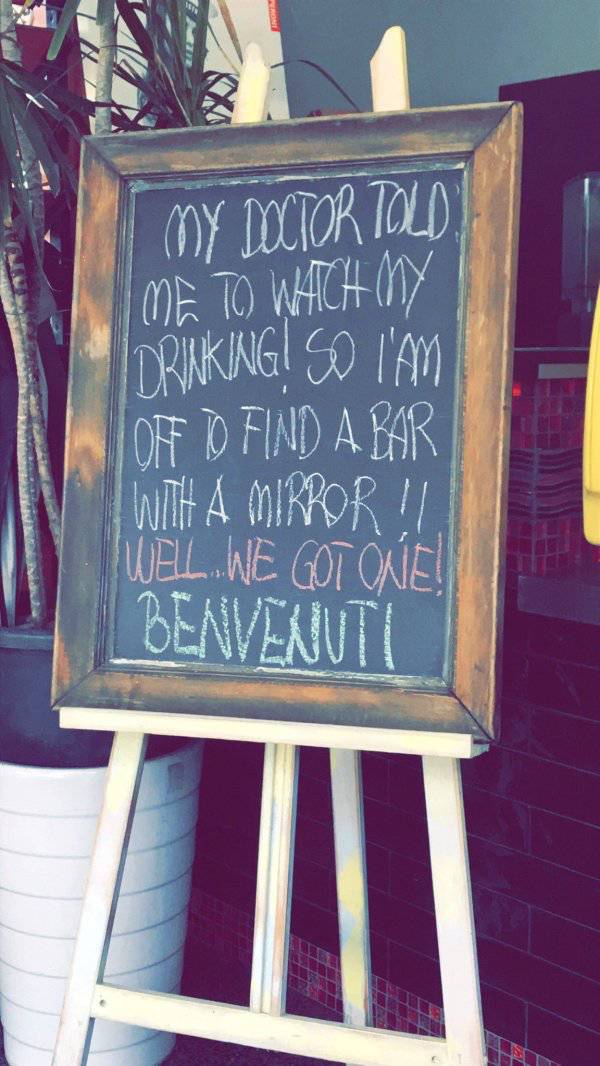 MY DOCTOR TOLD
ME TO WATCH MY
DRINKING! SO I'AM
OFF TO FIND A BAR
WITH A MIRROR !!
WELL..WE GOT ONE!
BENVENUTI